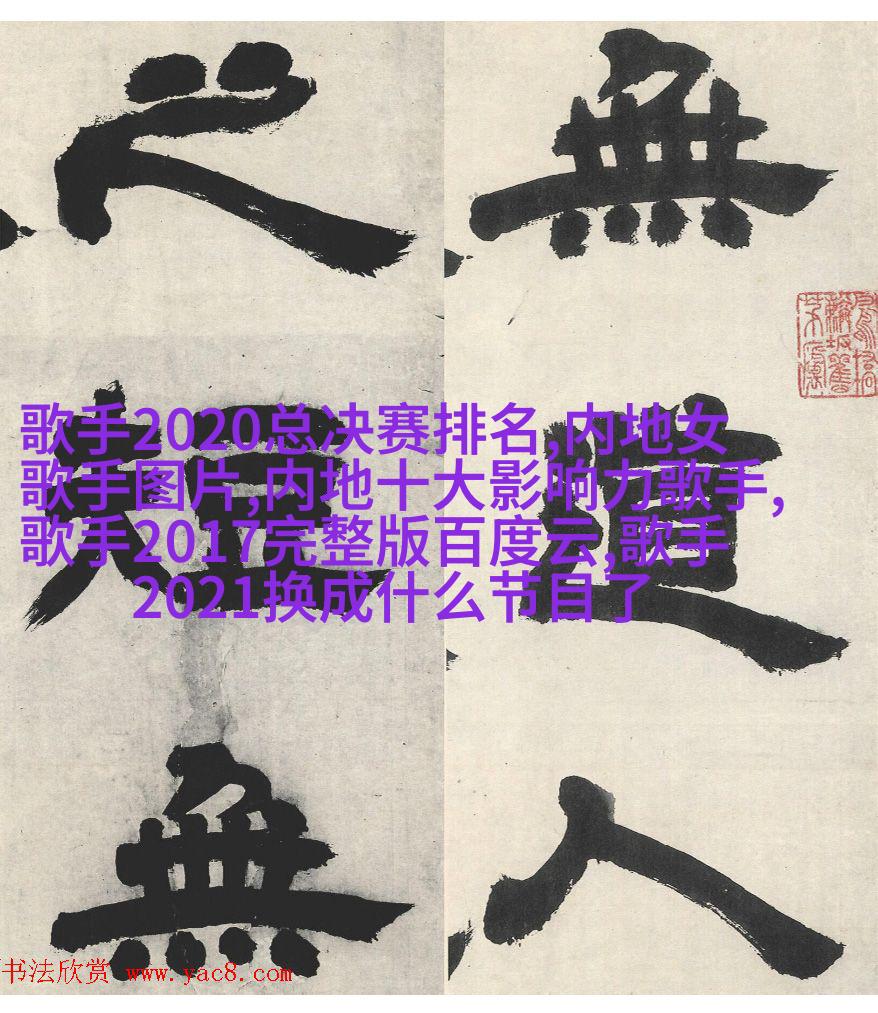 無
道
人
之
短
無
歌手2020总决赛排名,内地女
歌手图片,内地十大影响力歌手,
歌手2017完整版百度云,歌手
2021换成什么节目了
书法欣赏 www.yac8.com